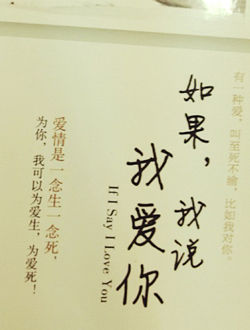 有一种爱，叫至死不渝，比如我对你。
如果，我说
我爱你
If I Say I Love You
爱情是一念生一念死，
为你，我可以为爱生，为爱死！